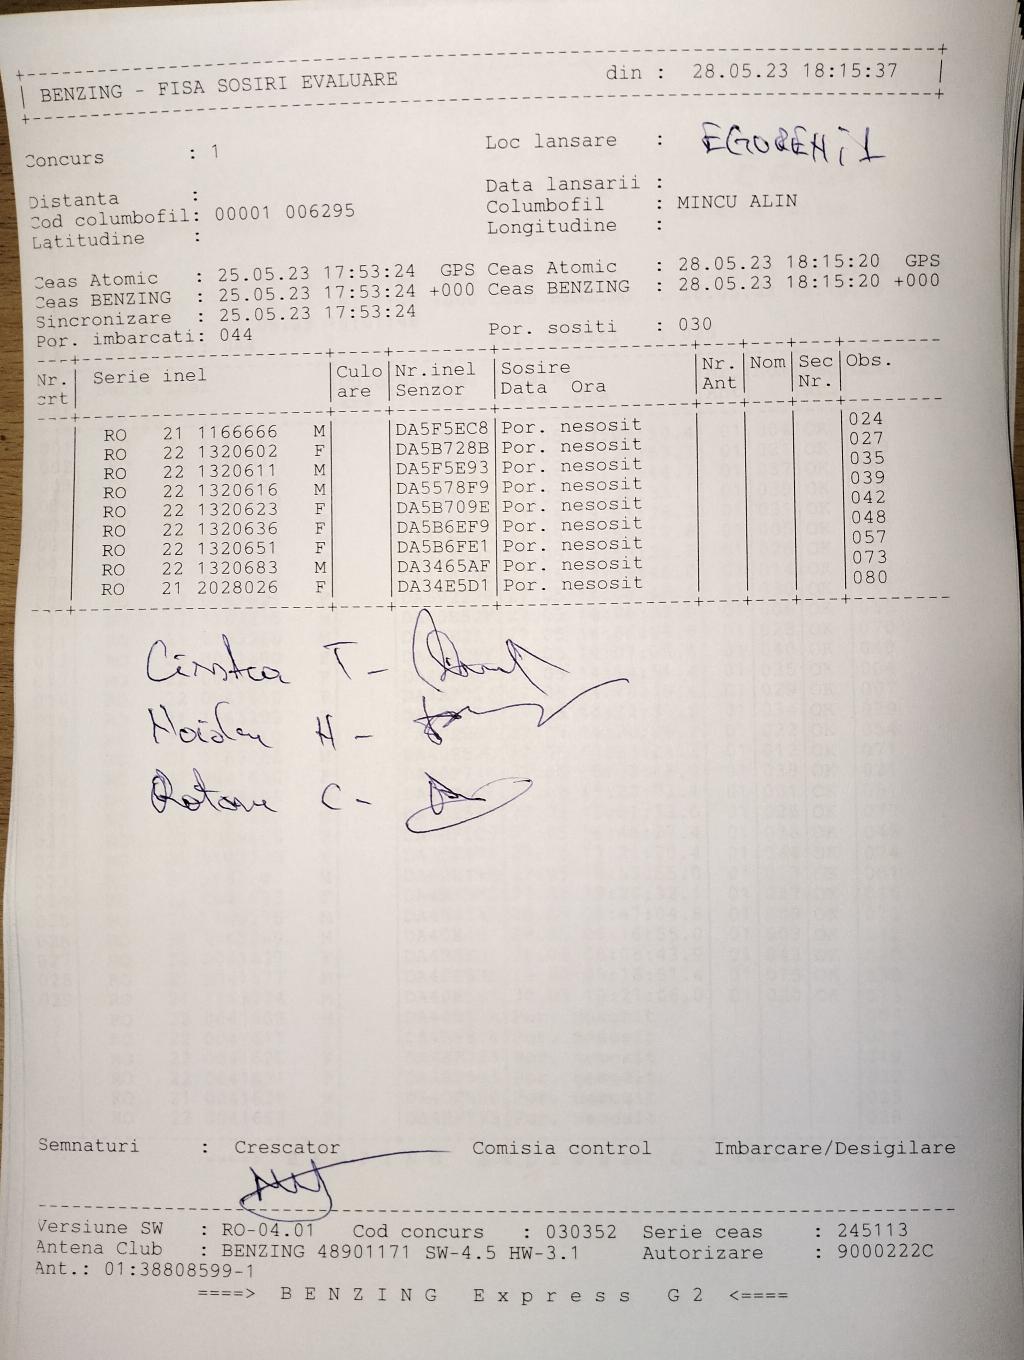 BENZING - FISA SOSIRI EVALUARE din : 28.05.23 18:15:37
Concurs : 1 Loc lansare : EGORENI 1
Distanta : Data lansarii :
Cod columbofil: 00001 006295 Columbofil : MINCU ALIN
Latitudine : Longitudine :
Ceas Atomic : 25.05.23 17:53:24 GPS Ceas Atomic : 28.05.23 18:15:20 GPS
Ceas BENZING : 25.05.23 17:53:24 +000 Ceas BENZING : 28.05.23 18:15:20 +000
Sincronizare : 25.05.23 17:53:24
Por. imbarcati: 044 Por. sositi : 030
Nr. Serie inel Culo Nr.inel Sosire Nr. Nom Sec Obs.
crt are Senzor Data Ora Ant Nr.
RO 21 1166666 M DA5F5EC8 Por. nesosit 024
RO 22 1320602 F DA5B728B Por. nesosit 027
RO 22 1320611 M DA5F5E93 Por. nesosit 035
RO 22 1320616 M DA5578F9 Por. nesosit 039
RO 22 1320623 F DA5B709E Por. nesosit 042
RO 22 1320636 F DA5B6EF9 Por. nesosit 048
RO 22 1320651 F DA5B6FE1 Por. nesosit 057
RO 22 1320683 M DA3465AF Por. nesosit 073
RO 21 2028026 F DA34E5D1 Por. nesosit 080
T -
H -
C -
Semnaturi : Crescator Comisia control Imbarcare/Desigilare
Versiune SW : RO-04.01 Cod concurs : 030352 Serie ceas : 245113
Antena Club : BENZING 48901171 SW-4.5 HW-3.1 Autorizare : 9000222C
Ant.: 01:38808599-1
====> B E N Z I N G E x p r e s s G 2 <====